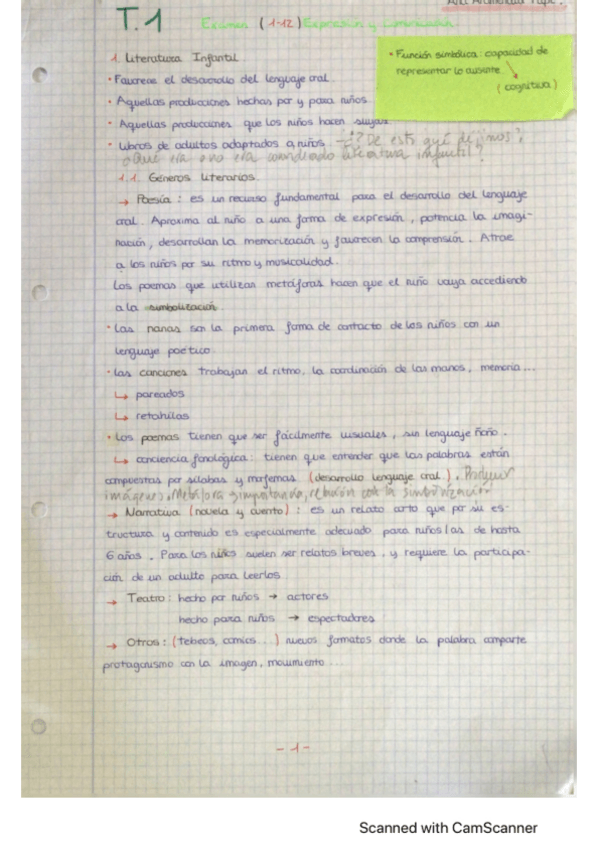 T.1 Examen (1-12) Expresión y comunicación
• Función simbólica: capacidad de
representar lo ausente
(cognitiva)
1. Literatura Infantil
• Favorece el desarrollo del lenguaje oral.
• Aquellas producciones hechas por y para niños.
• Aquellas producciones que los niños hacen suyas.
• Libros de adultos adaptados a niños. ¿? De esto qué dijimos?
¿Qué era o no era considerado literatura infantil?
1.1. Géneros literarios.
→ Poesía: es un recurso fundamental para el desarrollo del lenguaje
oral. Aproxima al niño a una forma de expresión, potencia la imagi-
nación, desarrollan la memorización y favorecen la comprensión. Atrae
a los niños por su ritmo y musicalidad.
Los poemas que utilizan metáforas hacen que el niño vaya accediendo
a la simbolización.
• Las nanas son la primera forma de contacto de los niños con un
lenguaje poético.
• Las canciones trabajan el ritmo, la coordinación de las manos, memoria...
↳ pareados
↳ retahílas
• Los poemas tienen que ser fácilmente visuales, sin lenguaje ñoño.
↳ conciencia fonológica: tienen que entender que las palabras están
compuestas por sílabas y morfemas (desarrollo lenguaje oral). Producir
imágenes. Metáfora su importancia, relación con la simbolización
→ Narrativa (novela y cuento): es un relato corto que por su es-
tructura y contenido es especialmente adecuado para niños/as de hasta
6 años. Para los niños suelen ser relatos breves, y requiere la participa-
ción de un adulto para leerlos
→ Teatro: hecho por niños → actores
hecho para niños → espectadores
→ Otros: (tebeos, comics...) nuevos formatos donde la palabra comparte
protagonismo con la imagen, movimiento...
- 1 -
Scanned with CamScanner